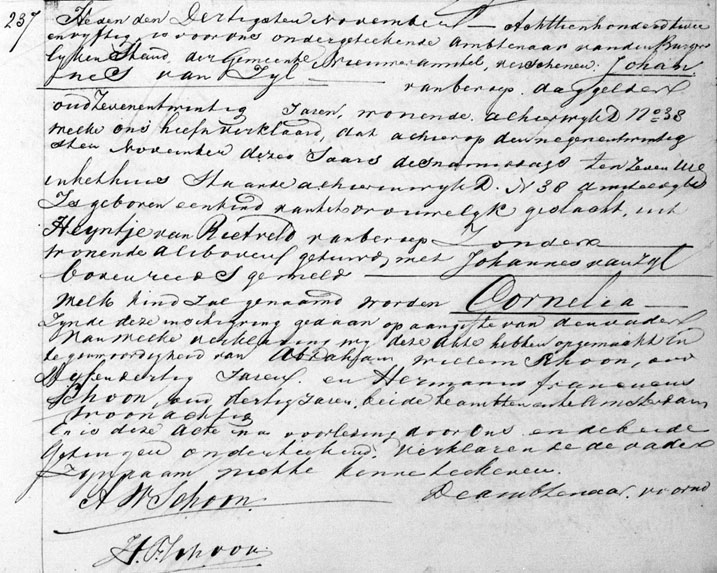 237 Heden den Dertigsten November Achttienhonderd twee
envyftig is voor ons ondergeteekende Ambtenaar van den Burger
lyken Stand der Gemeente Nieuweramstel, verschenen Johan
nes van Zyl van beroep daggelder
oud Zevenentwintig Jaren, wonende alhier wyk D No 38
welke ons heeft verklaard, dat alhier op den negenentwintig
sten November dezes Jaars des namiddags ten Zeven Ure
in het huis Staande alhier in wyk D. N 38
Is geboren een kind van het vrouwelyk geslacht, uit
Heyntje van Rietveld van beroep Zonder
wonende als boven gehuwd met Johannes van Zyl
boven reeds gemeld
welk kind zal genaamd worden Cornelia
Zynde deze inschryving gedaan op aangifte van den vader
Van welke verklaring wy deze Akte hebben opgemaakt In
tegenwoordigheid van Abraham Willem Schoon, oud
Vyfendertig Jaren en Hermanus franciscus
Schoon, oud dertig Jaren, beide te Amsterdam
woonachtig
En is deze Acte na voorlezing door Ons en de beide
Getuigen onderteekend. verklarende de vader
Zyn naam niet te kennen teekenen.
A W Schoon. De ambtenaar voornd
H. F. Schoon.